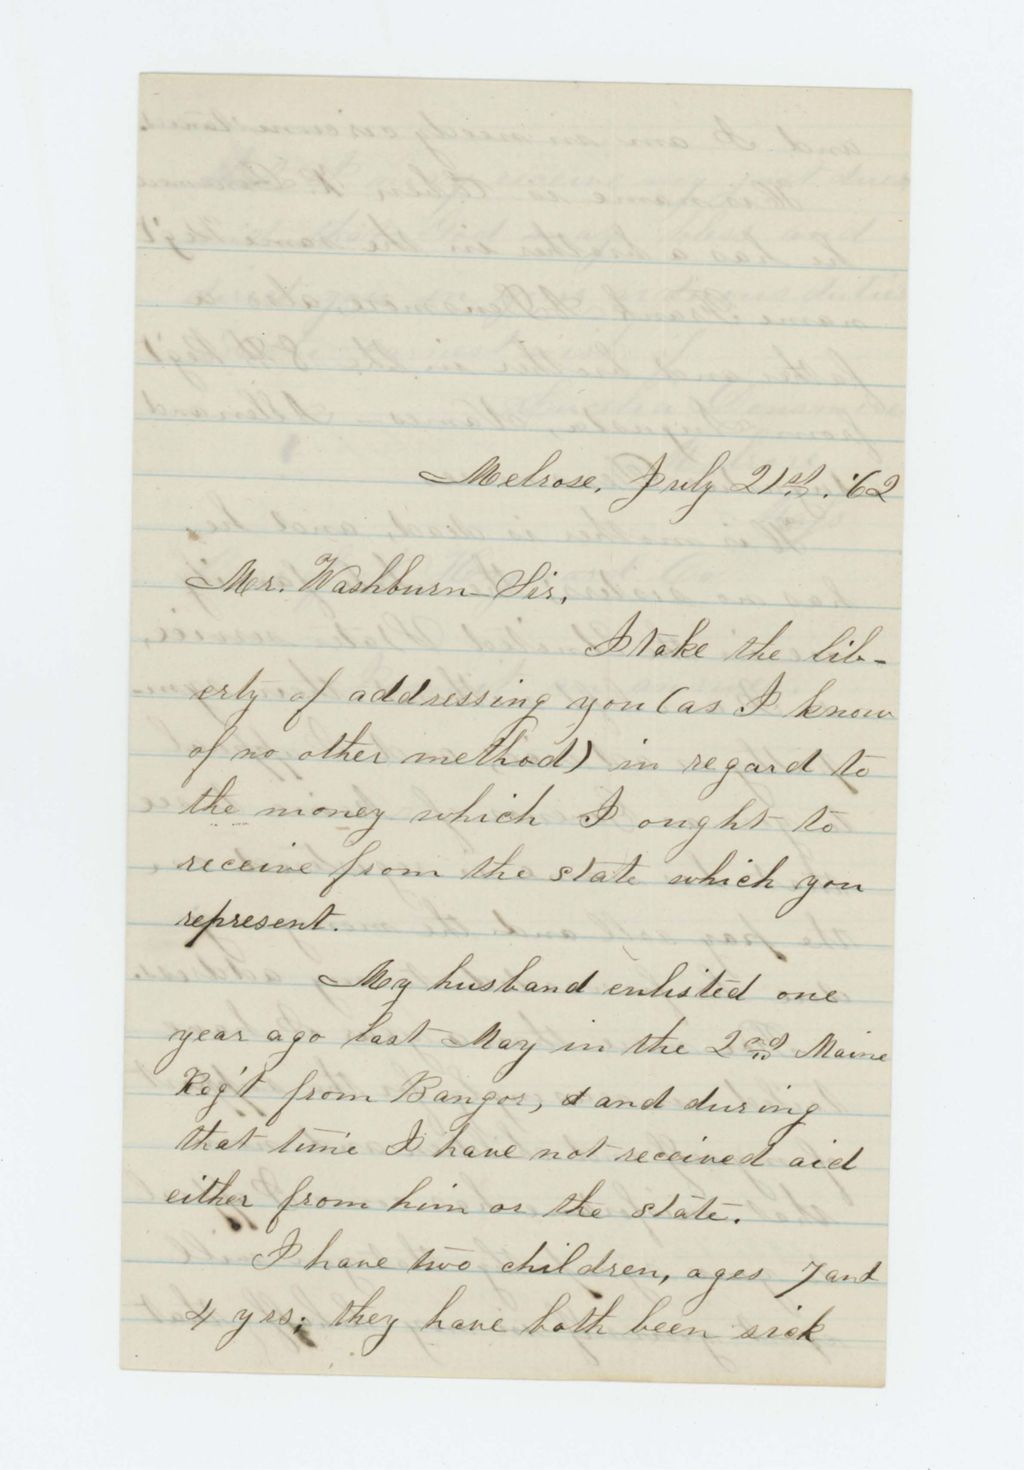 Melrose, July 21st. '62
Mr. Washburn - Sir,
I take the lib-
erty of addressing you (as I know
of no other method) in regard to
the money which I ought to
receive from the state which you
represent.
My husband enlisted one
year ago last May in the 2nd Maine
Reg't from Bangor, and during
that time I have not received aid
either from him or the state.
I have two children, ages 7 and
4 yrs; they have both been sick